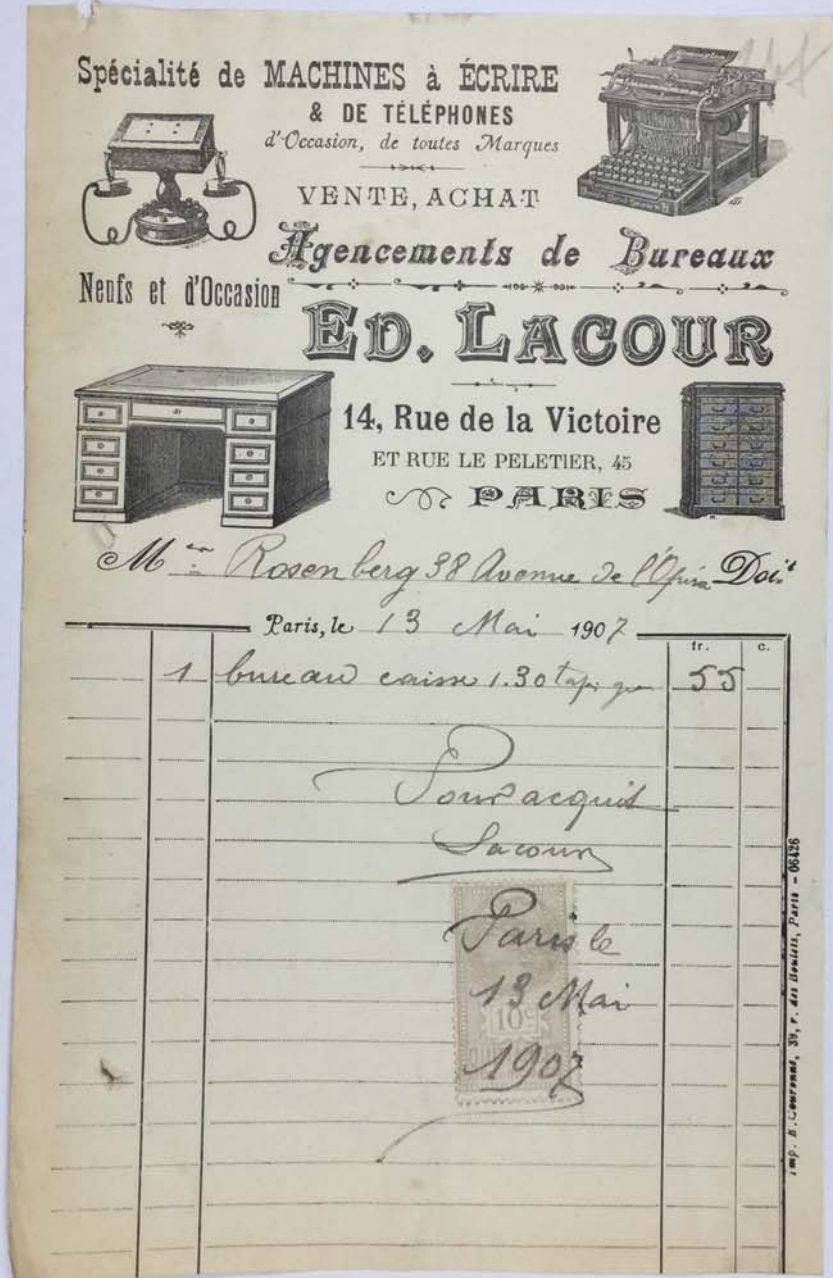 Spécialité de MACHINES à ÉCRIRE
& DE TÉLÉPHONES
d'Occasion, de toutes Marques
VENTE, ACHAT
Agencements de Bureaux
Neufs et d'Occasion
ED. LACOUR
14, Rue de la Victoire
ET RUE LE PELETIER, 45
PARIS
M Rosenberg 38 Avenue de l'Opéra Doit
Paris, le 13 Mai 1907
fr. c.
1 bureau caisse 1.30 55
Pour acquit
Lacour
Paris le
13 Mai
10c
1907
Imp. E. Couronne, 39, r. des Boulets, Paris - 06426